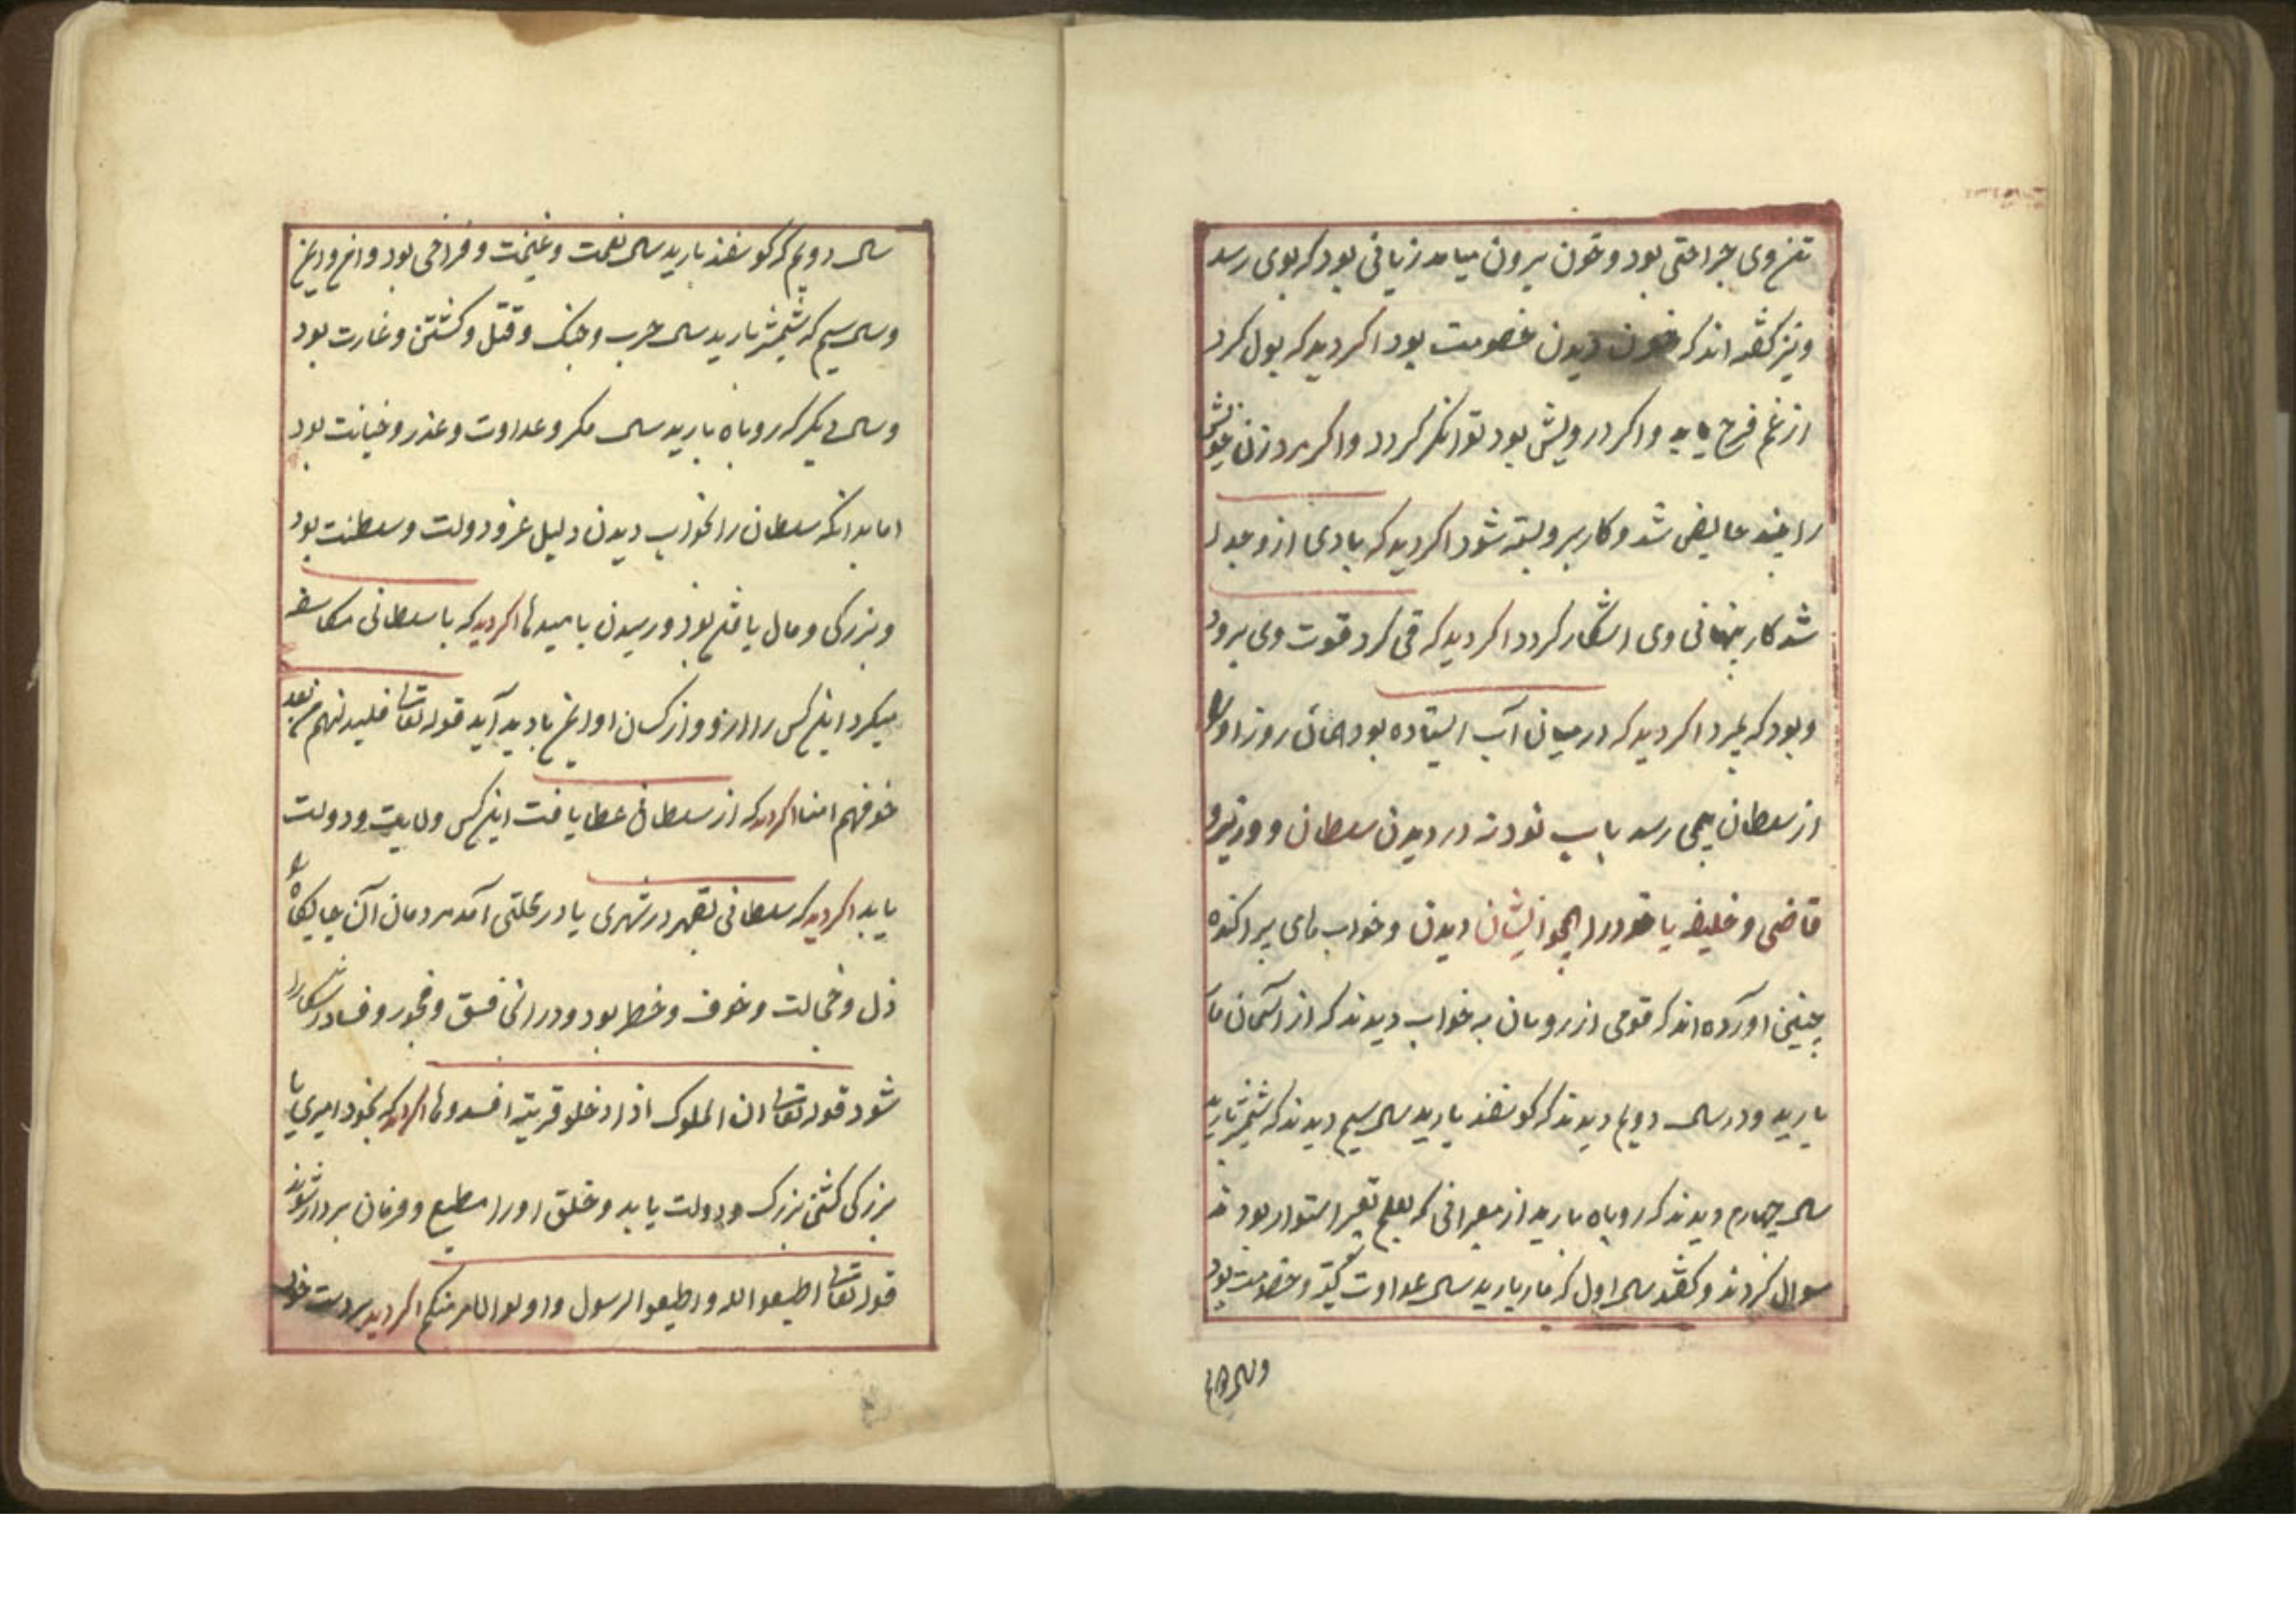 تن وی جراحتی بود و خون بیرون میامد زیانی بود که بوی رسد
و نیز گفته اند که خون دیدن خصومت بود اکر دید که بول کرد
از غم فرح یابد و اکر درویش بود توانکر کردد و اکر مرد زن خویش
را حایض شد و کار برو بسته شود اکر دید که بادی ازو جدا
شد کار پنهانی وی اشکار کردد اکر دید که قی کرد قوت وی برود
و بود که بمیرد اکر دید که درمیان آب ایستاده بود همان روز اورا
از سلطان رسد باب نودنه در دیدن سلطان و وزیر و
قاضی و خلیفه یا خود را چو ایشان دیدن و خواب های پراکنده
چنین آورده اند که قومی از رومیان به خواب دیدند که از آسمان مار
بارید و در سال دویم دیدند که کوسفند بارید سال سیم دیدند که شمشیر بارید
سال چهارم دیدند که روباه بارید از معبرانی که بعلم تعبیر استوار بودند
سوال کردند و کفتند سال اول که مار بارید سال عداوت و خصومت بود
سال دویم که کوسفند بارید سال نعمت و غنیمت و فراخی بود
و سال سیم که شمشیر بارید سال حرب و جنک و قتل و کشتن و غارت بود
و سال دیکر که روباه بارید سال مکر و عداوت و غدر و خیانت بود
اما بدانکه سلطان را بخواب دیدن دلیل عز و دولت و سلطنت بود
و بزرکی و مال یافتن بود و رسیدن بامیدها اکر دید که با سلطانی
میکرد اینکس را ارزو و از کسان او بادید آید قوله تعالی من بعد
خوفهم امنا اکر دید که از سلطان عطا یافت اینکس ولایت و دولت
یابد اکر دید که سلطانی بقهر در شهری یا در محلتی آمد مردمان آن جایکاه را
ذل و خجالت و خوف و خطر بود و درانجا فسق و فجور و فساد اشکارا
شود قوله تعالی ان الملوک اذا دخلو قریة افسدوها اکر دید که بخود امیری یا
بزرکی کشتی بزرک و دولت یابد و خلق اورا مطیع و فرمان بردار شوند
قوله تعالی اطیعوا الله و اطیعوا الرسول و اولوا الامر منکم اکر دید بر دست خود